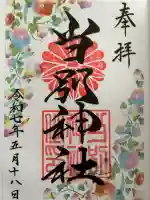 奉拝
当別神社
令和七年五月十八日